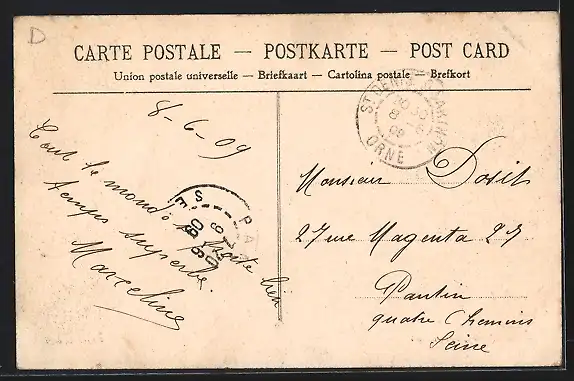 D
CARTE POSTALE — POSTKARTE — POST CARD
Union postale universelle — Briefkaart — Cartolina postale — Brefkort
8-6-09
Tout le monde se porte bien
temps superbe.
Marceline
ST DENIS S SARTHON
ORNE
Monsieur Dosit
27 rue Magenta 27
Pantin
quatre Chemins
Seine